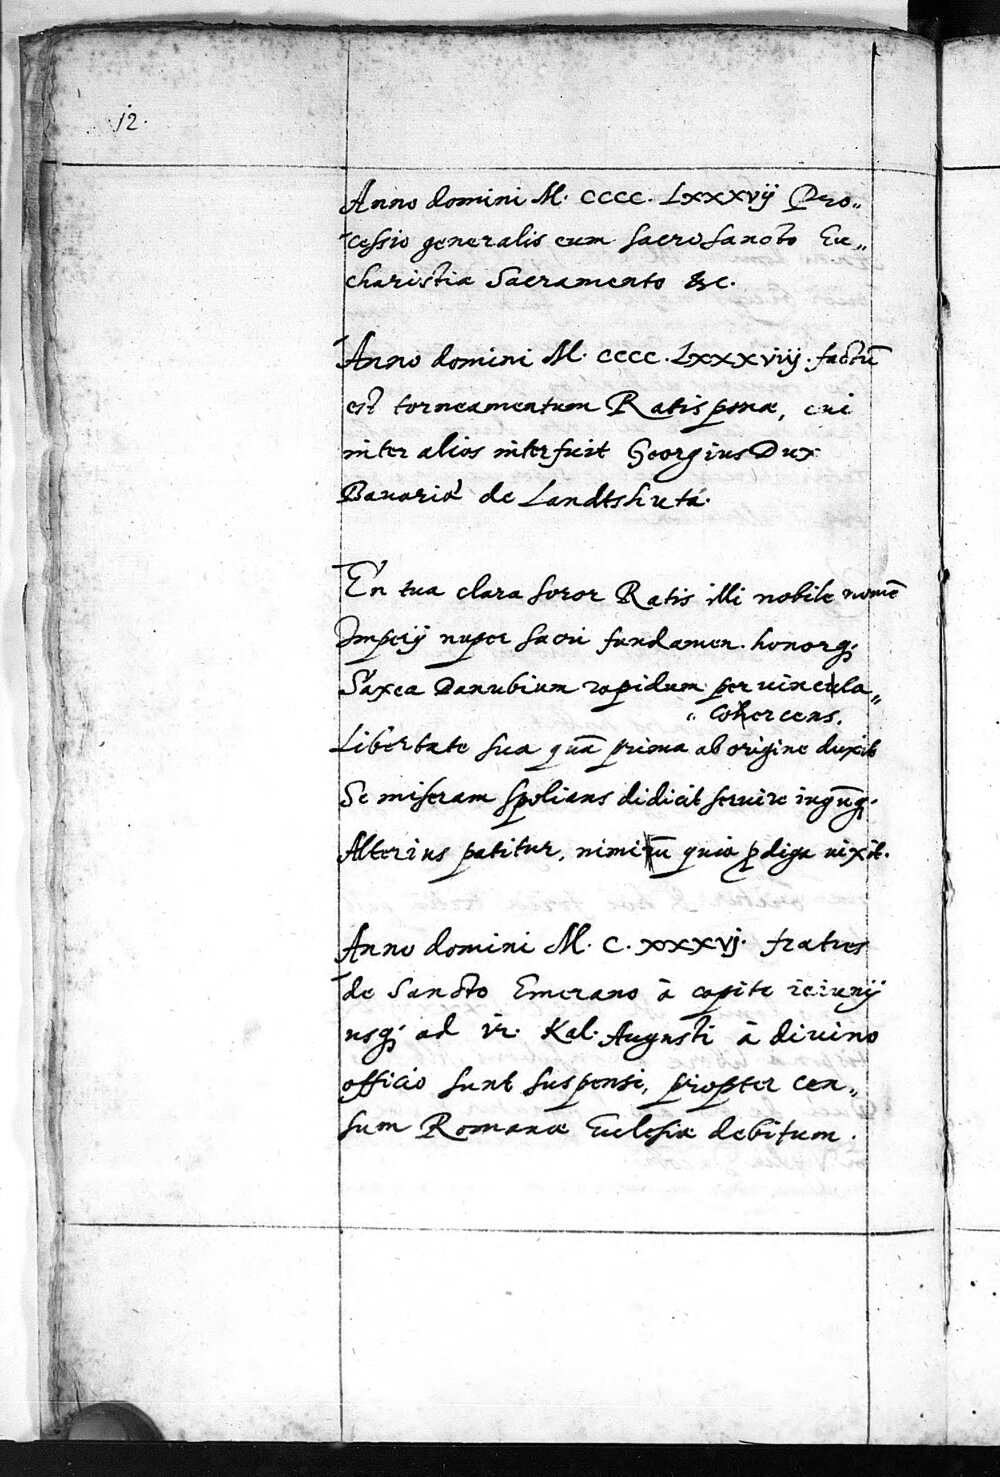 .12.
Anno domini M. CCCC. LXXXVij Pro„
cessio generalis cum sacrosancto Eu„
charistia Sacramento &c.
Anno domini M. CCCC. LXXXViij. factū
est torneamentum Ratisponæ, cui
inter alios interfuit Georgius Dux
Bauariæ de Landtshuta.
En tua clara soror Ratis illi nobile nomē
Imperij nuper sacri fundamen. honorq;
Saxea Danubium rapidum per vincula„
„ cohercens.
Libertate sua quā prima ab origine duxit
Se miseram spolians didicit seruire iugūq;
Alterius patitur, nimirū quia pdiga vixit.
Anno domini M. C. XXXVj. fratres
de Sancto Emerano à capite ieiunij
usq; ad Kal. Augusti à divino
officio sunt suspensi, propter cen„
sum Romanæ Ecclesiæ debitum.